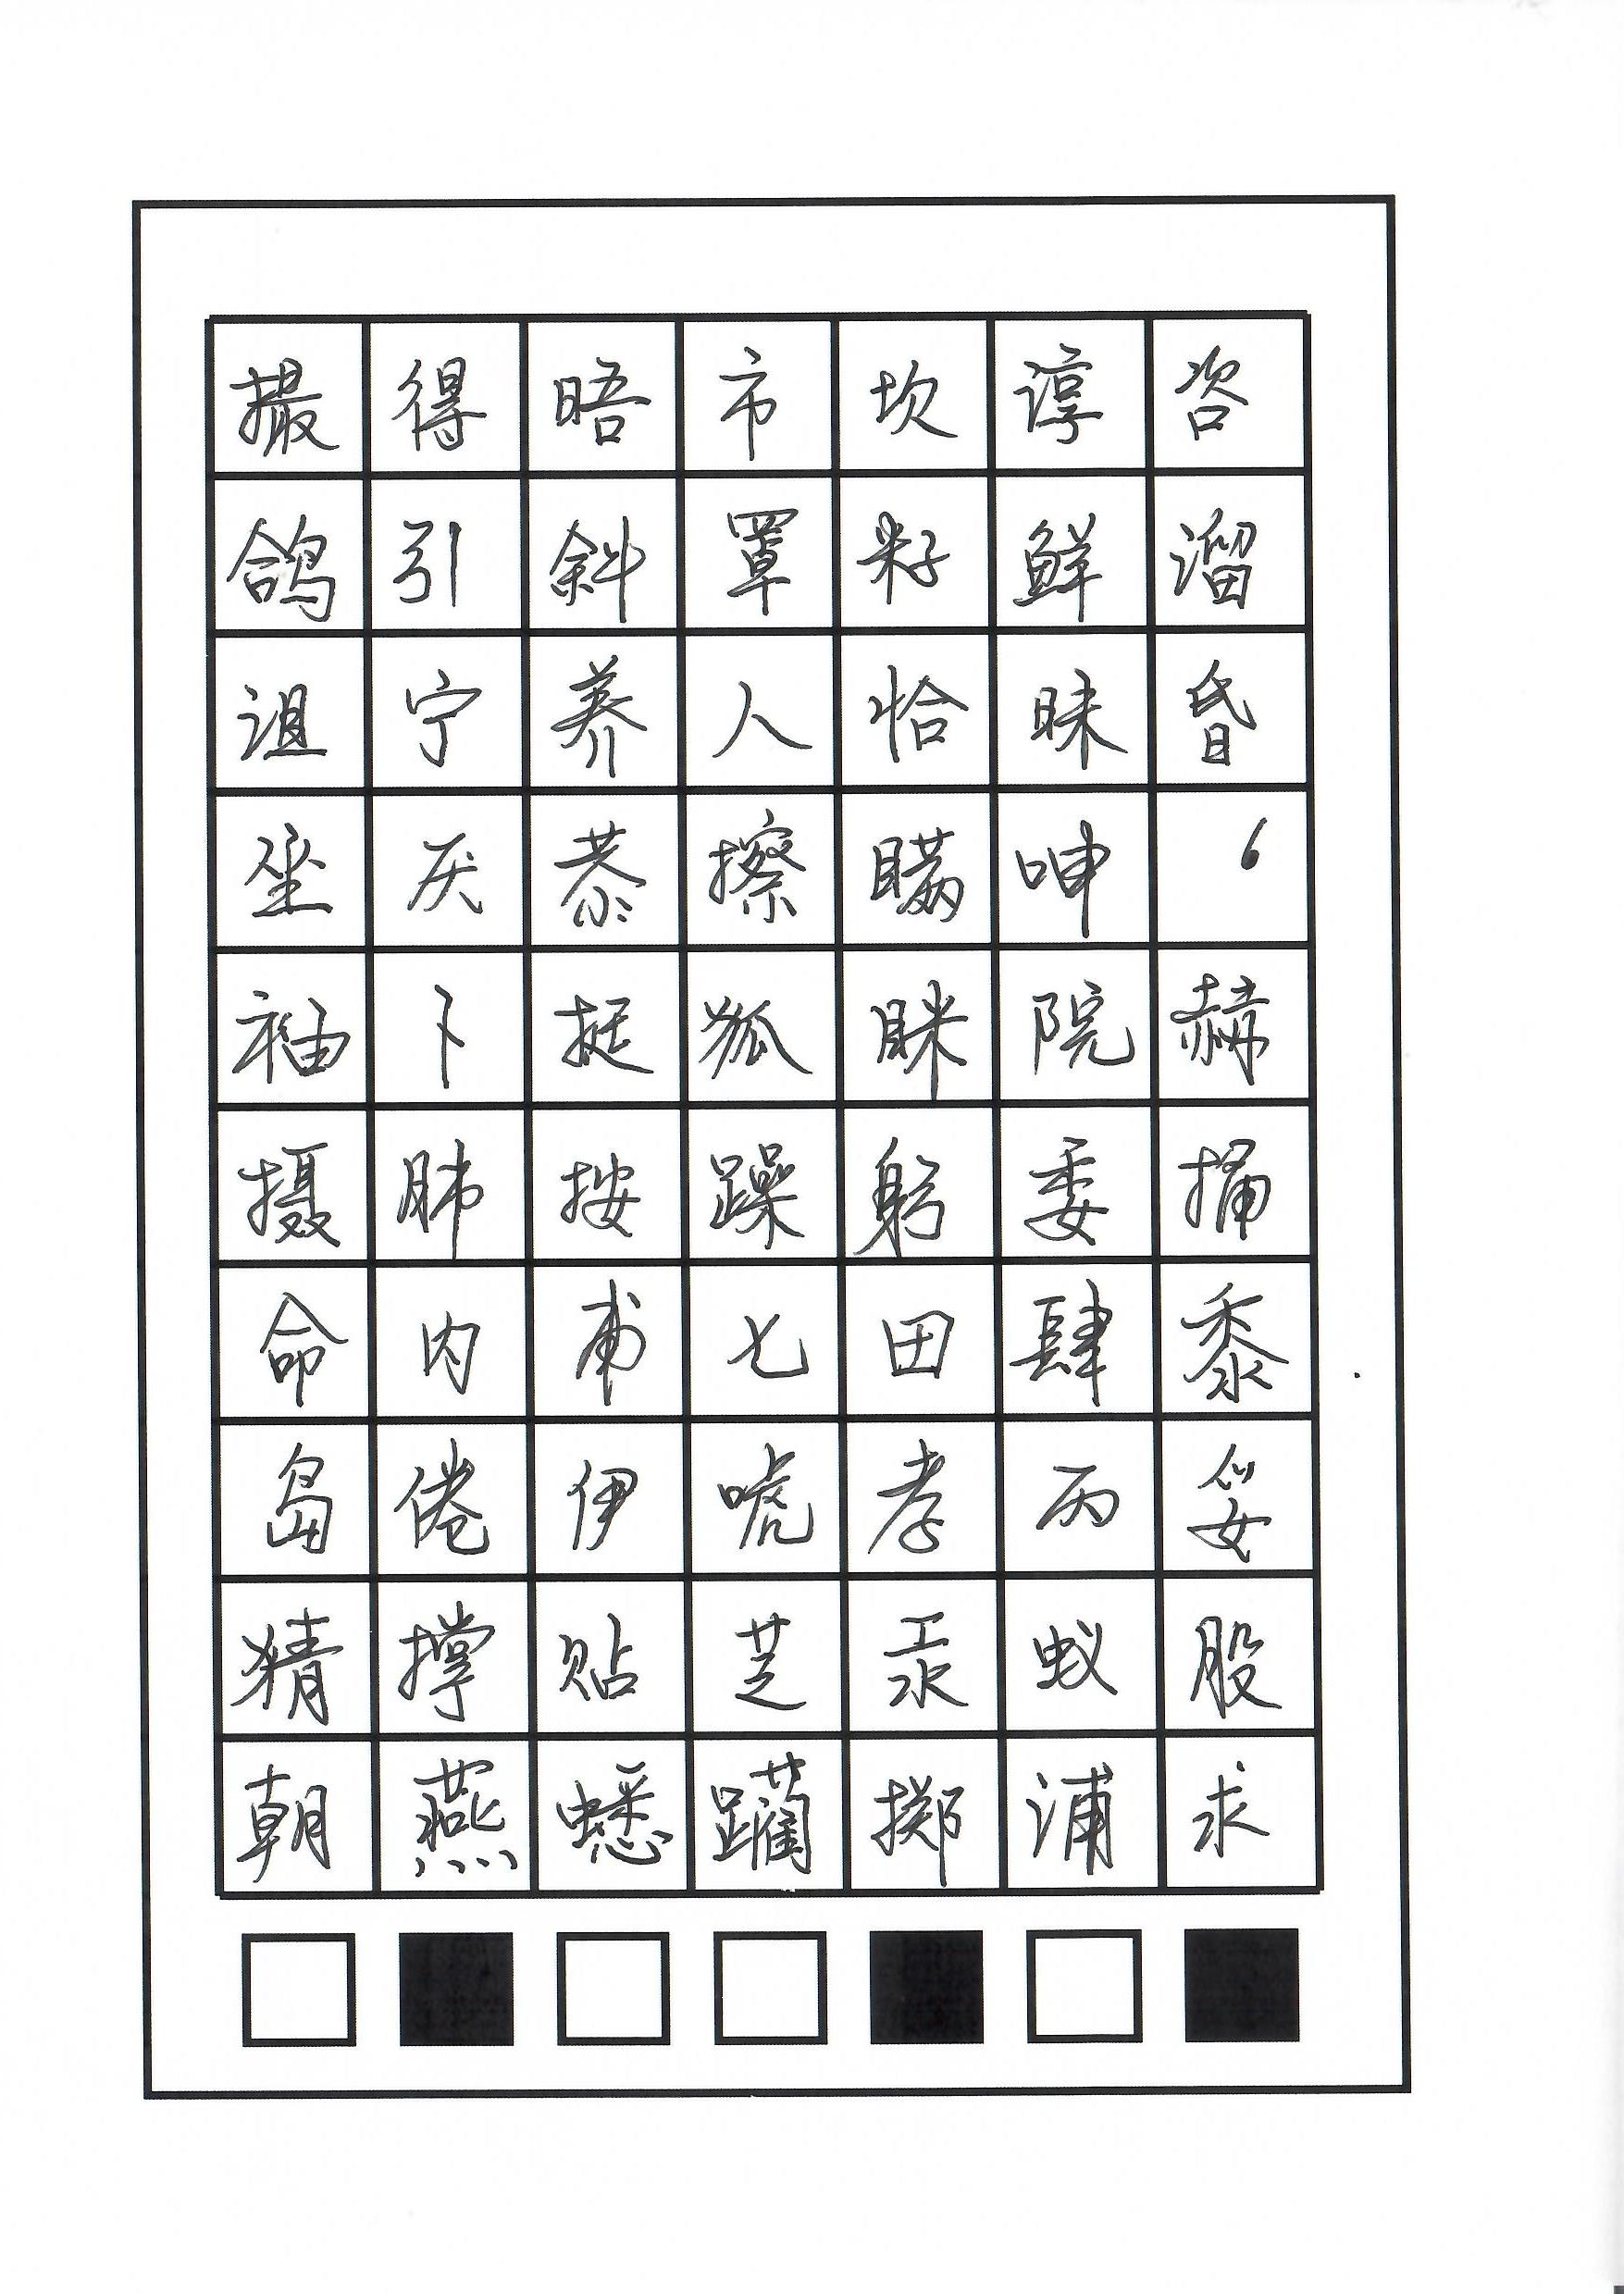 撮得晤市坎谆咨
鸽引斜罩籽鲜溜
诅宁养人恰昧昏
坐灰恭擦瞒呻6
袖卜挺狐眯院赫
摄肺按躁躬委捅
命内甫七田肆黍
岛倦伊唬孝丙妥
猜撑贴芝汞蚁股
朝燕蟋躏掷浦求